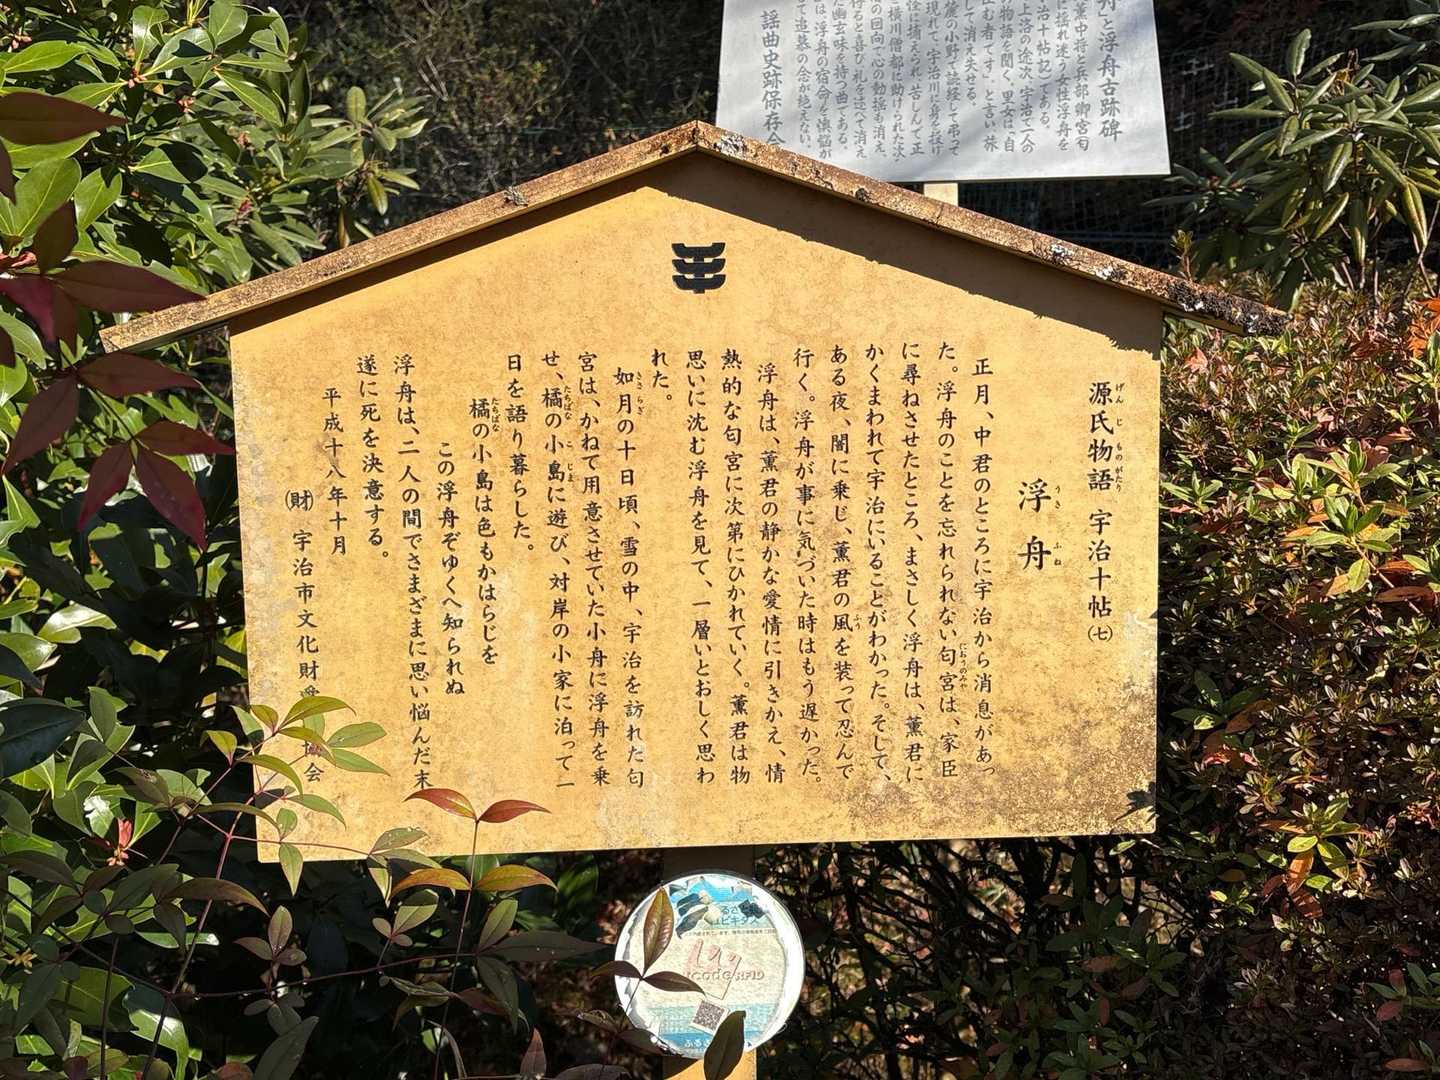 源氏物語 宇治十帖（七）
げんじものがたり
浮舟
うきふね
正月、中君のところに宇治から消息があっ
た。浮舟のことを忘れられない匂宮は、家臣
におうのみや
に尋ねさせたところ、まさしく浮舟は、薫君に
かくまわれて宇治にいることがわかった。そして、
ある夜、闇に乗じ、薫君の風を装って忍んで
ふう
行く。浮舟が事に気づいた時はもう遅かった。
浮舟は、薫君の静かな愛情に引きかえ、情
熱的な匂宮に次第にひかれていく。薫君は物
思いに沈む浮舟を見て、一層いとおしく思わ
れた。
如月の十日頃、雪の中、宇治を訪れた匂
きさらぎ
宮は、かねて用意させていた小舟に浮舟を乗
せ、橘の小島に遊び、対岸の小家に泊って一
たちばな こじま
日を語り暮らした。
橘の小島は色もかはらじを
たちばな
この浮舟ぞゆくへ知られぬ
浮舟は、二人の間でさまざまに思い悩んだ末
遂に死を決意する。
平成十八年十月
（財）宇治市文化財愛 協会
舟」と浮舟古跡碑
薫中将と兵部卿宮（匂
に揺れ迷う女性浮舟を
治十帖記）である。
上洛の途次、宇治で一人の
の物語を聞く。里女は、自
む者です」と言い旅
して消え失せる。
麓の小野で読経して弔って
現れて、宇治川に身を投げ
怪に捕えられ、苦しんで正
横川僧都に助けられた次
の回向で心の動揺も消え、
得ると喜び礼を述べて消え
た幽玄味を持つ曲である。
は浮舟の宿命と懊悩が
追慕の念が絶えない。
謡曲史跡保存会
ucode RFID